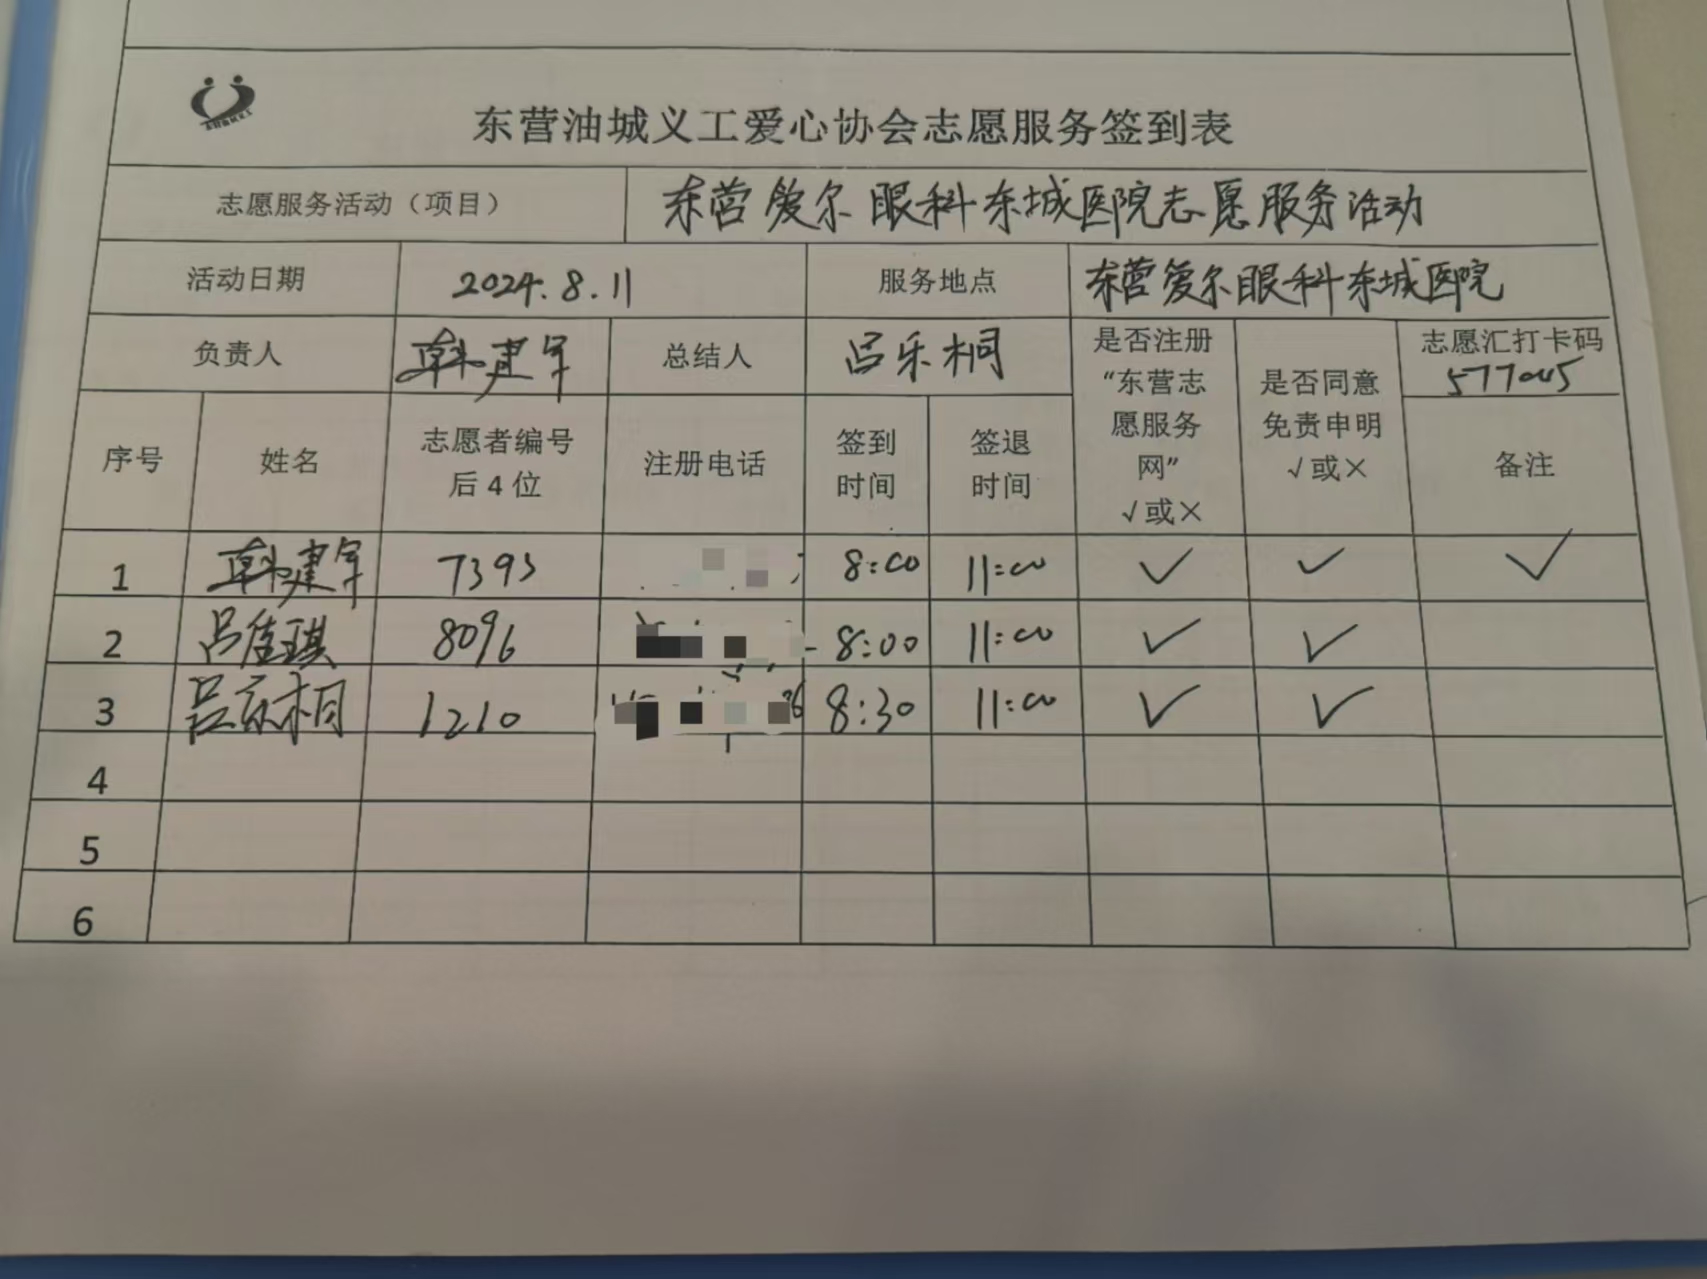 东营油城义工爱心协会志愿服务签到表
志愿服务活动（项目） 东营爱尔眼科东城医院志愿服务活动
活动日期 2024.8.11 服务地点 东营爱尔眼科东城医院
负责人 韩建军 总结人 吕乐桐 是否注册“东营志愿服务网”√或× 是否同意免责申明√或× 志愿汇打卡码 577045
序号 姓名 志愿者编号后4位 注册电话 签到时间 签退时间 备注
1 韩建军 7393 8:00 11:00 ✓ ✓ ✓
2 吕佳琪 8096 8:00 11:00 ✓ ✓
3 吕乐桐 1210 8:30 11:00 ✓ ✓
4
5
6